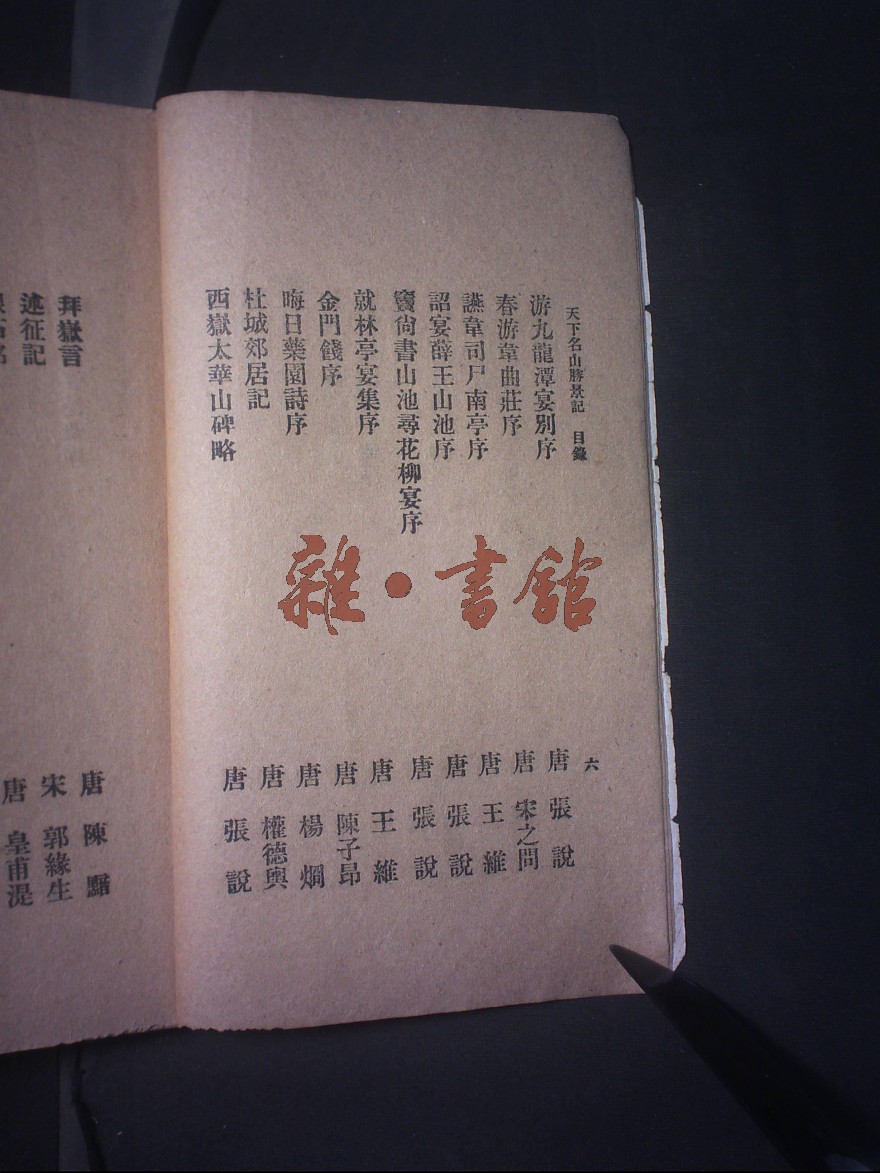 天下名山勝景記 目錄 六
游九龍潭宴別序 唐 張說
春游韋曲莊序 唐 宋之問
讌韋司戶南亭序 唐 王維
詔宴薛王山池序 唐 張說
竇尙書山池尋花柳宴序 唐 張說
就林亭宴集序 唐 王維
金門餞序 唐 陳子昂
晦日藥園詩序 唐 楊烱
杜城郊居記 唐 權德輿
西嶽太華山碑略 唐 張說
拜嶽言 唐 陳黯
述征記 宋 郭緣生
唐 皇甫湜
雜·書館